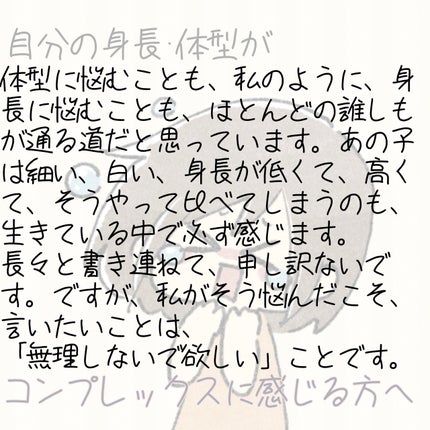 自分の身長・体型が
体型に悩むことも、私のように、身
長に悩むことも、ほとんどの誰しも
が通る道だと思っています。あの子
は細い、白い、身長が低くて、高く
て、そうやって比べてしまうのも、
生きている中で必ず感じます。
長々と書き連ねて、申し訳ないで
す。ですが、私がそう悩んだこそ、
言いたいことは、
「無理しないで欲しい」ことです。
コンプレックスに感じる方へ